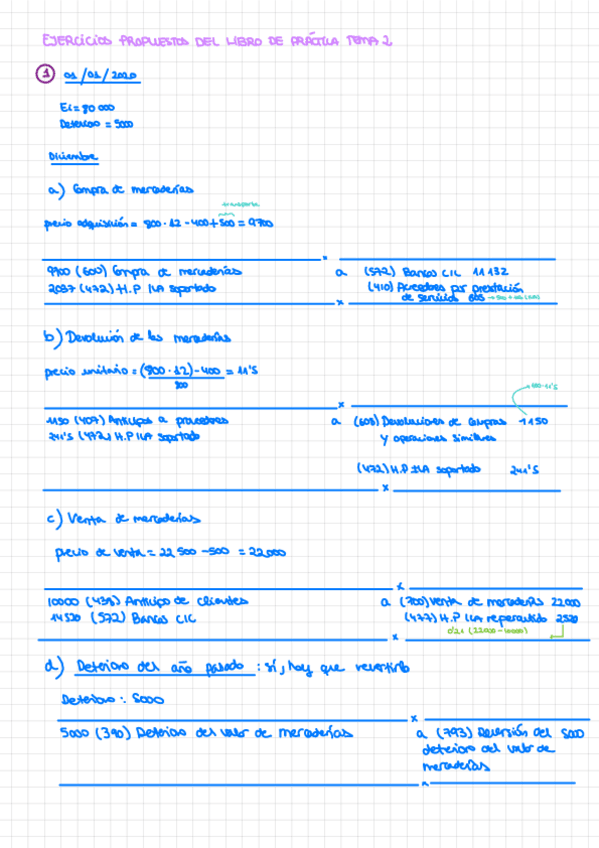 EJERCICIOS PROPUESTOS DEL LIBRO DE PRÁCTICA TEMA 2
1 01/01/2020
Ei = 80 000
Deterioro = 5000
Diciembre
a) Compra de mercaderías
transporte
precio adquisición = 800 · 12 - 400 + 500 = 9700
9700 (600) Compra de mercaderías a (572) Bancos C/C 11 132
2037 (472) H.P IVA soportado (410) Acreedores por prestación
de servicios 605
b) Devolución de las mercaderías
precio unitario = (800 · 12) - 400 = 11'5
800
1150 (407) Anticipos a proveedores a (608) Devoluciones de compras 1150
241'5 (472) H.P IVA soportado y operaciones similares
(472) H.P IVA soportado 241'5
c) Venta de mercaderías
precio de venta = 22 500 - 500 = 22000
10000 (438) Anticipo de clientes a (700) Venta de mercaderías 22000
14520 (572) Bancos C/C (477) H.P IVA repercutido 2520
0'21 (22000 - 10000)
d) Deterioro del año pasado : sí, hay que revertirlo
Deterioro : 5000
5000 (390) Deterioro del valor de mercaderías a (793) Reversión del 5000
deterioro del valor de
mercaderías